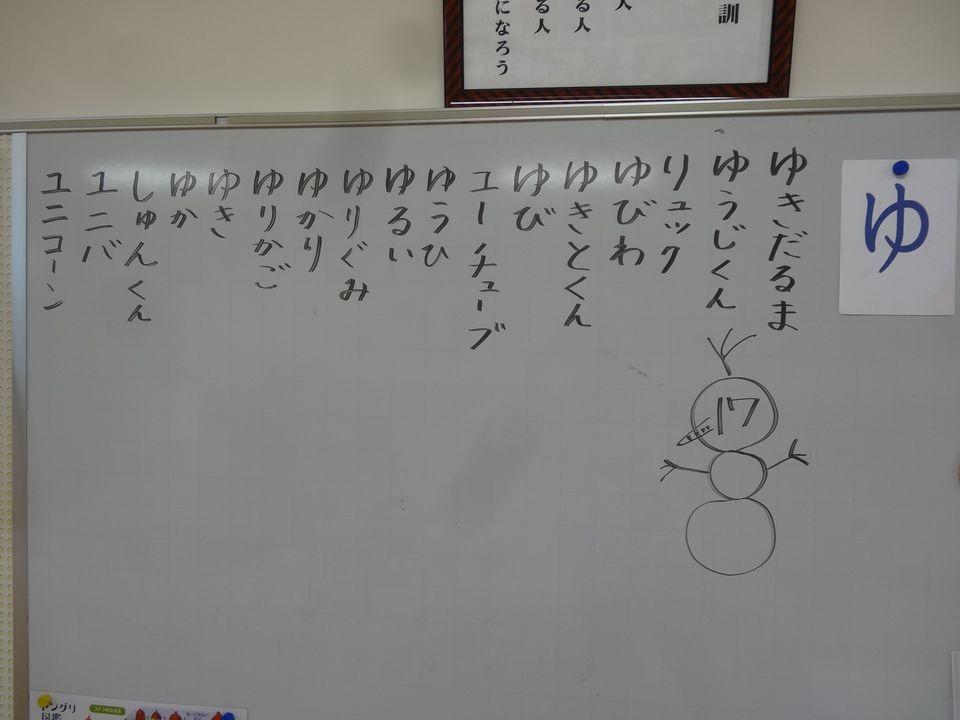 訓
人
る人
る人
になろう
ゆ
ゆきだるま
ゆうじくん
リュック
ゆびわ
ゆきとくん
ゆび
ユーチューブ
ゆうひ
ゆるい
ゆりぐみ
ゆかり
ゆりかご
ゆき
ゆか
しゅんくん
ユニバ
ユニコーン
17
ドングリ
図鑑